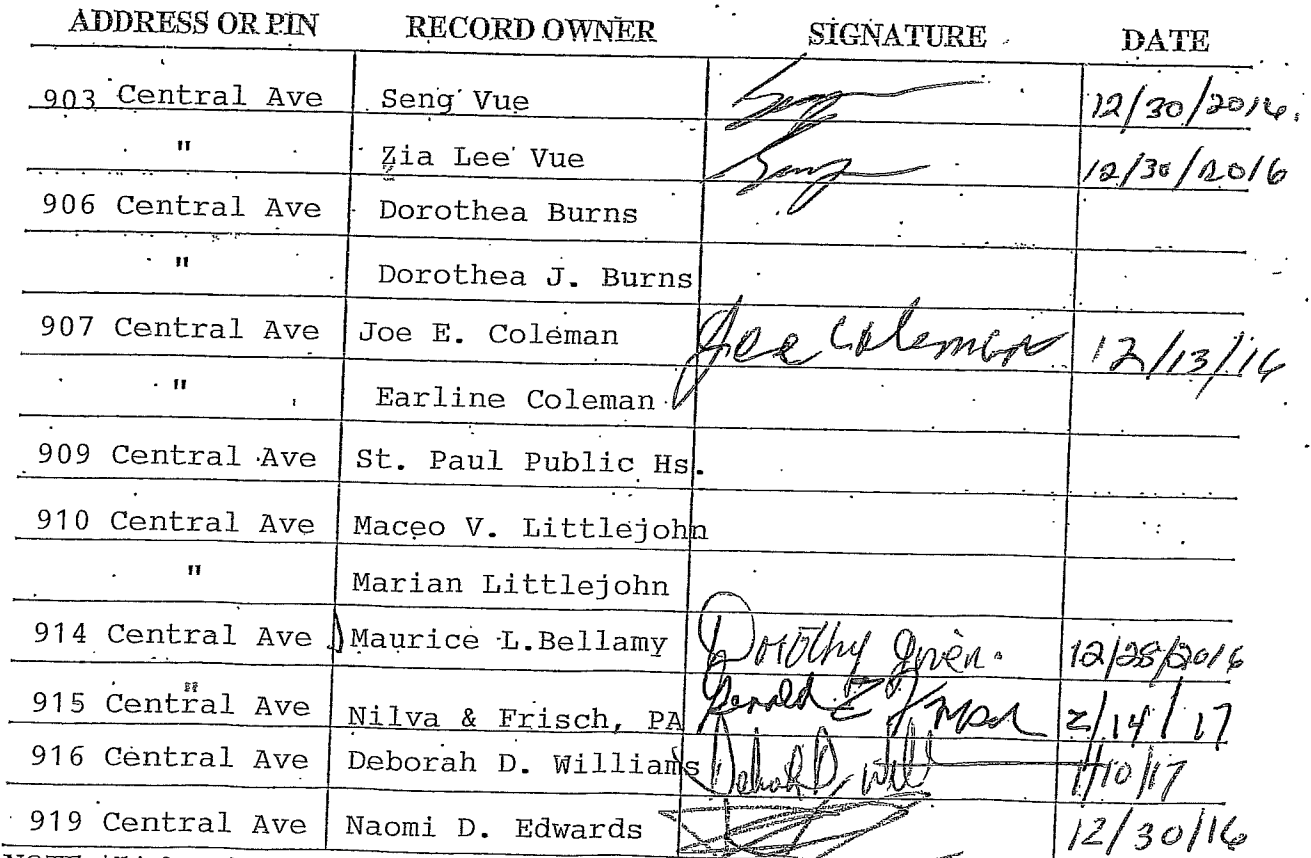 ADDRESS OR PIN RECORD OWNER SIGNATURE DATE
903 Central Ave Seng Vue 12/30/2016
" Zia Lee Vue 12/30/2016
906 Central Ave Dorothea Burns
" Dorothea J. Burns
907 Central Ave Joe E. Coleman Joe Coleman 12/13/16
" Earline Coleman
909 Central Ave St. Paul Public Hs.
910 Central Ave Maceo V. Littlejohn
" Marian Littlejohn
914 Central Ave Maurice L.Bellamy Dorothy 12/28/2016
915 Central Ave Nilva & Frisch, PA 2/14/17
916 Central Ave Deborah D. Williams 1/10/17
919 Central Ave Naomi D. Edwards 12/30/16